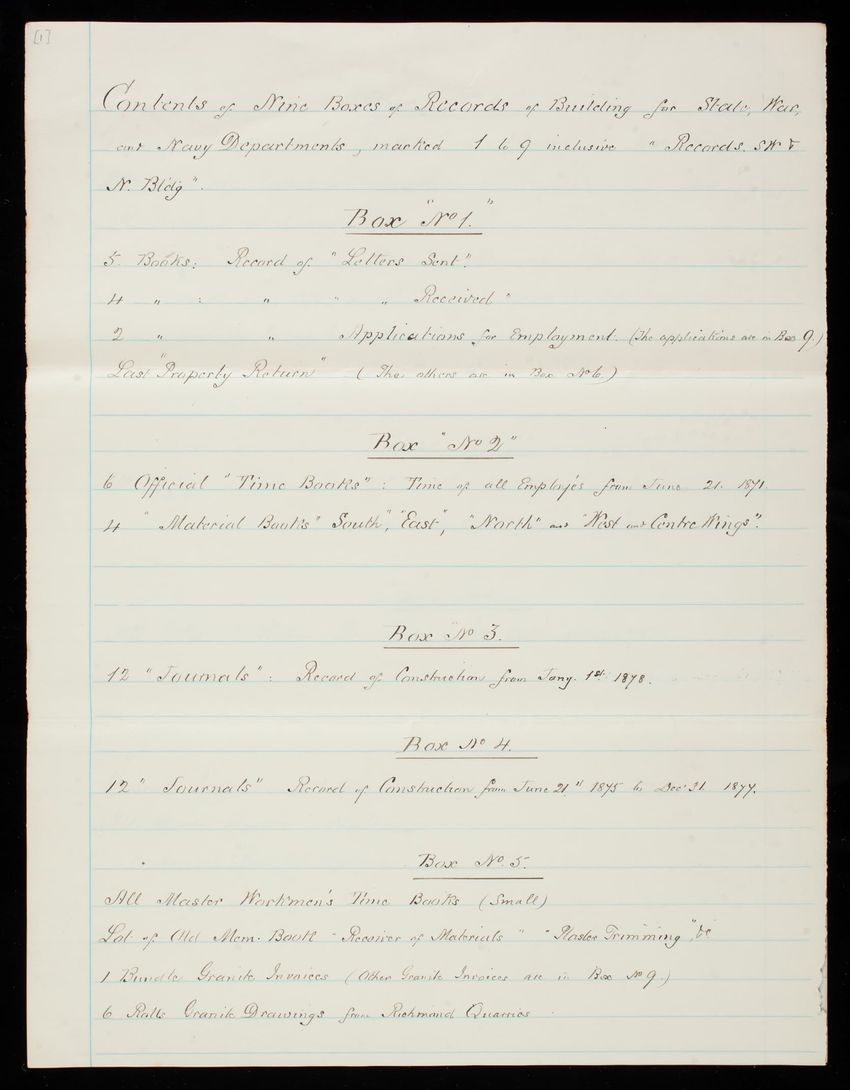 [1]
Contents of Nine Boxes of Records of Building for State, War,
and Navy Departments, marked 1 to 9 inclusive " Records. S.W &
N. Bldg".
Box "No 1."
5 Books: Record of "Letters Sent".
4 " : " " " Received"
2 " " Applications for Employment. (The applications are in Box 9.)
Last "Property Return" (The others are in Box No 6)
Box "No 2"
6 Official "Time Books": Time of all Employés from June 21. 1871.
4 " Material Books" South", "East", "North" and "West and Centre Wings".
Box "No 3.
12 "Journals": Record of Construction from Jany. 1st 1878.
Box No 4.
12 " Journals" Record of Construction from June 21" 1875 to Dec' 31. 1877.
Box No. 5.
All Master Workmen's Time Books (Small)
Lot of Old Mem. Book "Receiver of Materials" "Plaster Trimming", &c
1 Bundle Granite Invoices (Other Granite Invoices are in Box No 9.)
6 Rolls Granite Drawings from Richmond Quarries